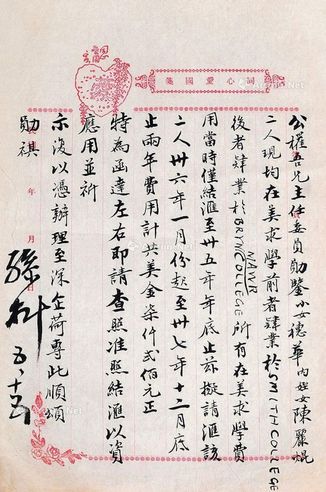 同心愛國箋
公權吾兄主任委員勛鑒小女穗華內姪女陳麗焜
二人現均在美求學前者肄業於SMITH COLLEGE
後者肄業於BRYN MAWR COLLEGE所有在美求學費
用當時僅結匯至卅五年年底止茲擬請匯該
二人卅六年一月份起至卅七年十二月底
止兩年費用計共美金柒仟弍佰元正
特為函達左右即請查照准照結匯以資
應用並祈
示復以憑辦理至深企荷專此順頌
勛祺
孫科 五、十五
年 月 日